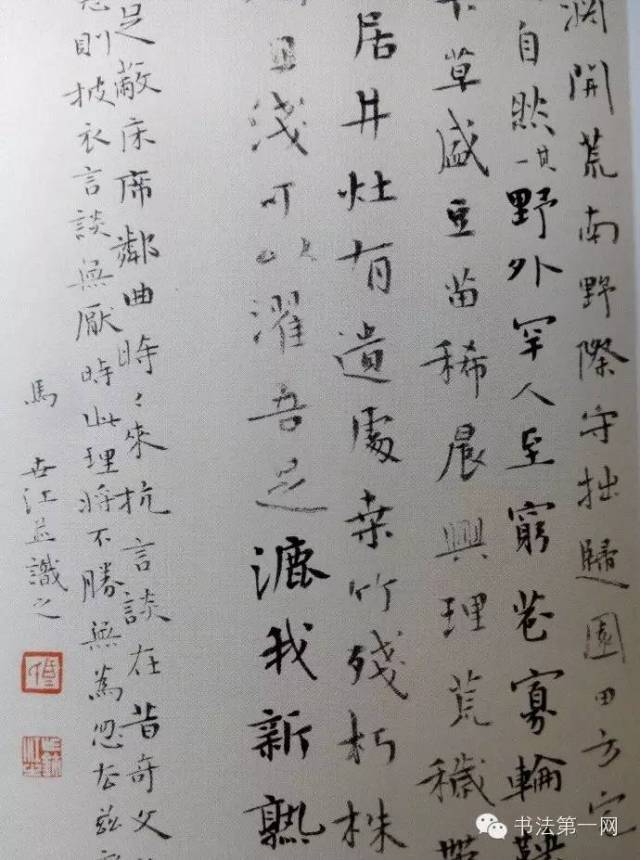 渊開荒南野際守拙歸園田方宅
自然其野外罕人至窮巷寡輪鞅
草盛豆苗稀晨興理荒穢帶
居井灶有遺處桑竹殘朽株
且淺可以濯吾足漉我新熟
足蔽床席鄰曲時〻來抗言談在昔奇文
則披衣言談無厭時此理將不勝無為忽去兹
馬世江並識之
书法第一网